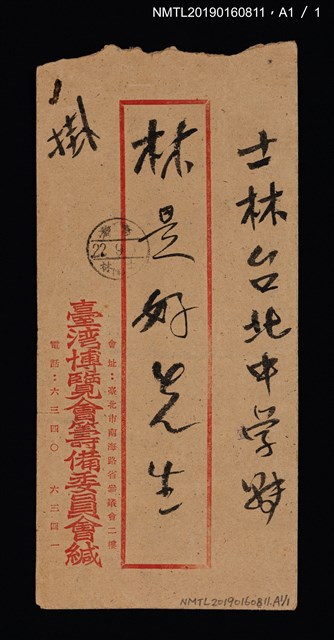 NMTL20190160811，A1 / 1
士林台北中学
林是好先生
掛
會址：臺北市南海路省參議會二樓
臺灣博覽會籌備委員會緘
電話：六三四〇 六三四一
22
林
NMTL20190160811.A1/1